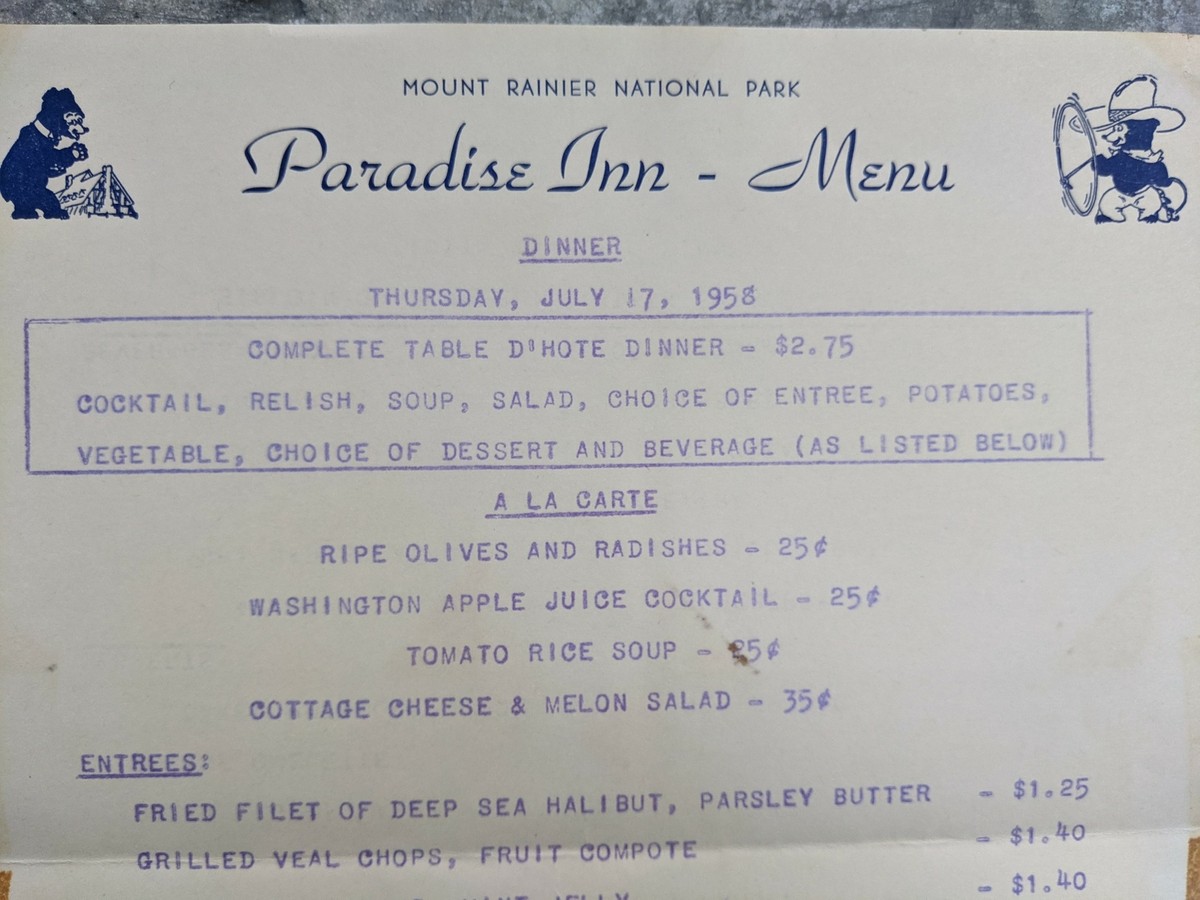 MOUNT RAINIER NATIONAL PARK
Paradise Inn - Menu
DINNER
THURSDAY, JULY 17, 1958
COMPLETE TABLE D'HOTE DINNER - $2.75
COCKTAIL, RELISH, SOUP, SALAD, CHOICE OF ENTREE, POTATOES,
VEGETABLE, CHOICE OF DESSERT AND BEVERAGE (AS LISTED BELOW)
A LA CARTE
RIPE OLIVES AND RADISHES - 25¢
WASHINGTON APPLE JUICE COCKTAIL - 25¢
TOMATO RICE SOUP - 25¢
COTTAGE CHEESE & MELON SALAD - 35¢
ENTREES:
FRIED FILET OF DEEP SEA HALIBUT, PARSLEY BUTTER - $1.25
GRILLED VEAL CHOPS, FRUIT COMPOTE - $1.40
JELLY - $1.40